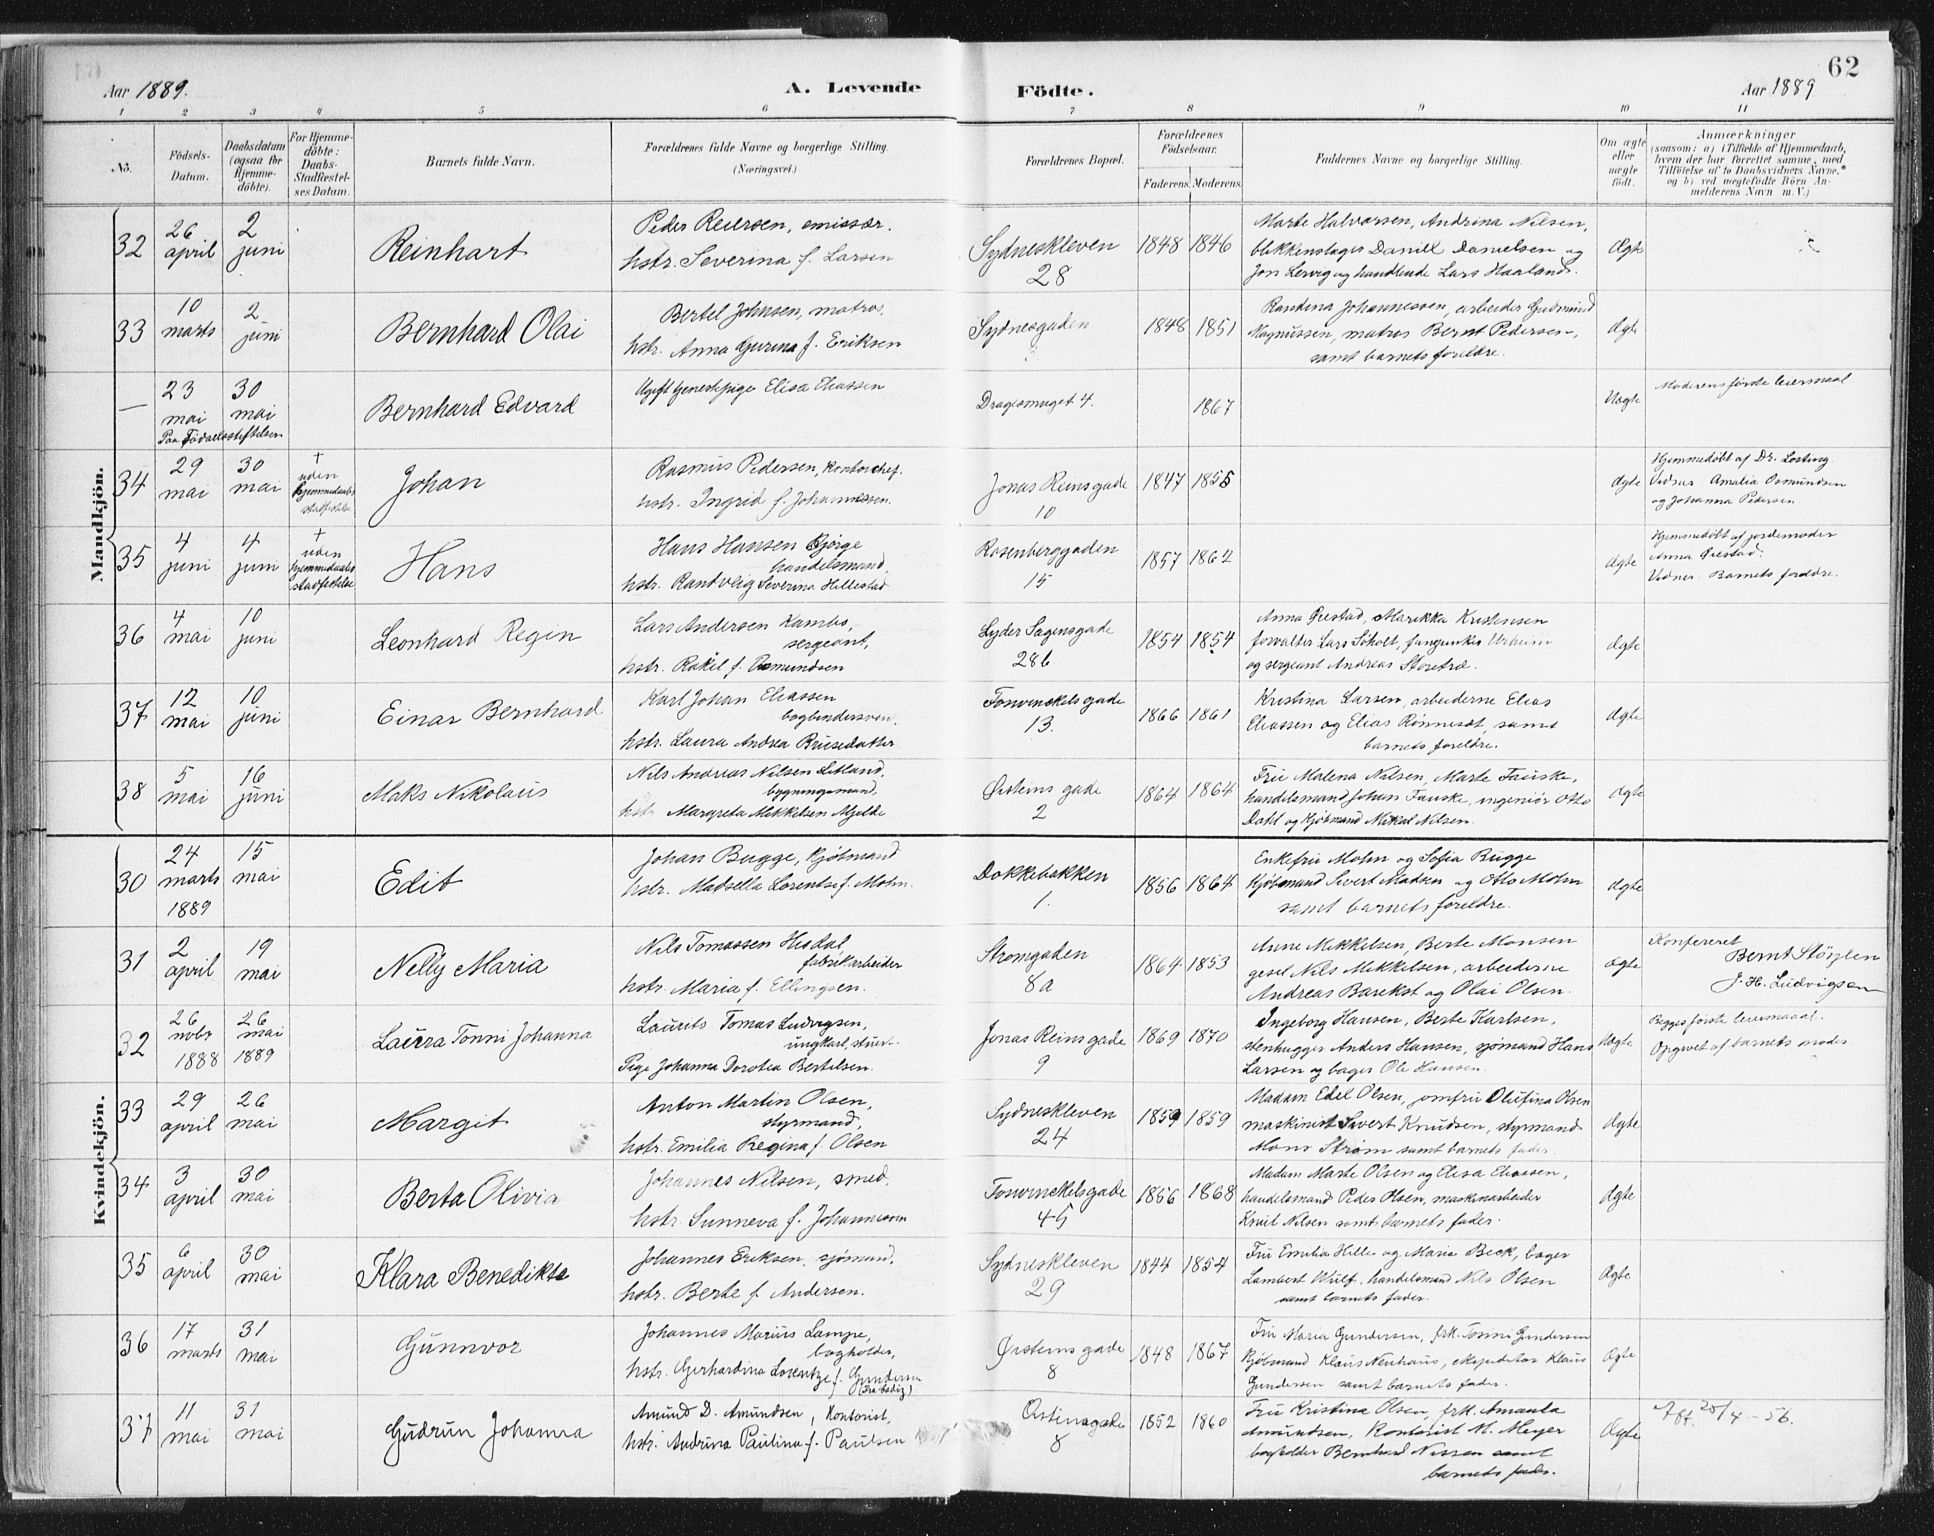 62
Aar 1889.
A. Levende Födte.
Aar 1889
1 2 3 4 5 6 7 8 9 10 11
No.
Födsels-
Datum.
Daabsdatum
(ogsaa for
Hjemme-
döbte).
For Hjemme-
döbte:
Daabs-
Stadfestel-
ses Datum.
Barnets fulde Navn.
Forældrenes fulde Navne og borgerlige Stilling.
(Næringsvei.)
Forældrenes Bopæl.
Forældrenes
Födselsaar.
Faderens. Moderens.
Faddernes Navne og borgerlige Stilling.
Om ægte
eller
uægte
födt.
Anmærkninger
(saasom: a) i Tilfælde af Hjemmedaab,
hvem der har forrettet samme, med
Tilföielse af to Daabsvidners Navne,
og b) ved uægtefödte Börn An-
melderens Navn m. V.)
Mandkjön.
32
26
april
2
juni
Reinhart
Peder Reiersen, emissær.
hstr. Severina f. Larsen
Sydneskleven
28
1848 1846
Marte Halvorsen, Andrina Nilsen,
blikkenslager Daniel Danielsen og
Jon Lervig og handlende Lars Haaland.
Ægte
33
10
marts
2
juni
Bernhard Olai
Bertel Johnsen, matros,
hstr. Anna Gurina f. Eriksen
Sydnesgaden
1848 1851
Randina Johannessen, arbeider Gudmund
Magnussen, matros Bernt Pedersen,
samt barnets foreldre.
Ægte
—
23
mai
30
mai
Paa Födselsstiftelsen
Bernhard Edvard
Ugift tjenestepige Elisa Eliassen
Dragesmuget 4.
1867
Uægte
Moderens første leiermaal
34
29
mai
30
mai
†
uden
hjemmedaabs
stadfestelse
Johan
Rasmus Pedersen, kontorchef.
hstr. Ingrid f. Johannessen.
Jonas Reinsgade
10
1847 1855
Ægte
Hjemmedöbt af Dr. Losting.
Vidner Amalia Osmundsen
og Johanna Pedersen.
35
4
juni
4
juni
†
uden
hjemmedaabs
stadfestelse
Hans
Hans Hansen Bjørge
handelsmand.
hstr. Randveig Severina Hillestad
Rosenberggaden
15
1857 1862
Ægte
Hjemmedöbt af jordemoder
Anna Ørestad.
Vidner Barnets foreldre.
36
4
mai
10
juni
Leonhard Regin
Lars Andersen Kambo,
sergeant,
hstr. Rakel f. Osmundsen
Lyder Sagensgade
28b
1854 1854
Anna Ørestad, Marikka Kristensen
forvalter Lars Söholt,
og sergeant Andreas Storetræ.
Ægte
37
12
mai
10
juni
Einar Bernhard
Karl Johan Eliassen
bogbindersven,
hstr. Laura Andrea Brusedatter
Torvinckelsgade
13.
1866 1861
Kristina Larsen, arbeiderne Elias
Eliassen og Elias Rönnesæt, samt
barnets foreldre.
Ægte
38
5
mai
16
juni
Maks Nikolaus
Nils Andreas Nilsen Litland,
bygningsmand.
hstr. Margreta Mikkelsen Mjelde
Ørsteins gade
2
1864 1864
Fru Malena Nilsen, Marte Fauske,
handelsmand Johan Fauske, ingeniör Otto
Dahl og kjöbmand Nikal Nilsen.
Ægte
Kvindekjön.
30
24
marts
1889
15
mai
Edit
Johan Bugge, kjöbmand
hstr. Madsella Lorentse f. Mohn.
Dokkebakken
1.
1856 1864
Enkefru Mohn og Sofia Bugge
Kjöbmand Sivert Madsen og Otto Mohn
samt barnets foreldre.
Ægte
31
2
april
19
mai
Nelly Maria
Nils Tomassen Hisdal
fabrikarbeider
hstr. Maria f. Ellingsen.
Strømgaden
8a
1864 1853
Anne Mikkelsen, Berte Monsen
gesel Nils Mikkelsen, arbeiderne
Andreas Barekst og Olai Olsen.
Ægte
Konfereret
Bernt Støylen
J. H. Ludvigsen
32
26
novbr
1888
26
mai
1889
Laura Tonni Johanna
Laurits Tomas Ludvigsen,
ungkarl, stuert.
Pige Johanna Dorotea Bertelsen.
Jonas Reins gade
9
1869 1870
Ingeborg Hansen, Berte Karlsen,
stenhugger Anders Hansen, sjömand Hans
Larsen og bager Ole Hansen.
Uægte
Begges første leiermaal.
Opgivet af barnets moder
33
29
april
26
mai
Margit
Anton Martin Olsen,
styrmand,
hstr. Emilia Regina f. Olsen
Sydneskleven
24
1859 1859
Madam Edel Olsen, jomfru Olufina Olsen
maskinist Sivert Knudsen, styrmand
Mons Strøm samt barnets fader.
Ægte
34
3
april
30
mai
Berta Olivia
Johannes Nilsen, smed.
hstr. Sunneva f. Johannesen
Torvinckelsgade
45
1856 1868
Madam Marte Olsen og Elisa Eliassen,
handelsmand Peder Olsen, maskinarbeider
Knut Nilsen samt barnets fader.
Ægte
35
6
april
30
mai
Klara Benedikte
Johannes Eriksen, sjömand,
hstr. Berte f. Andersen.
Sydneskleven
29
1844 1854
Fru Emilia Hille og Maria Beck, bager
Lambert Wulf, handelsmand Nils Olsen
samt barnets fader.
Ægte
36
17
marts
31
mai
Gunnvor
Johannes Marius Lampe,
bogholder,
hstr. Gerhardina Lorentze f. Gundersen
Ørsteins gade
8
1848 1867
Fru Maria Gundersen, frk. Tonni Gundersen
Kjöbmand Klaus Neuhaus, ekspeditør Klaus
Gundersen samt barnets fader.
Ægte
37
11
mai
31
mai
Gudrun Johanna
Amund D. Amundsen, Kontorist,
hstr. Andrina Paulina f. Paulsen
Ørstinsgade
8
1852 1860
Fru Kristina Olsen, frk. Amanda
Amundsen, Kontorist M. Meyer
bogholder Bernhard Nissen samt
barnets fader.
Ægte
Att. 25/4-56.